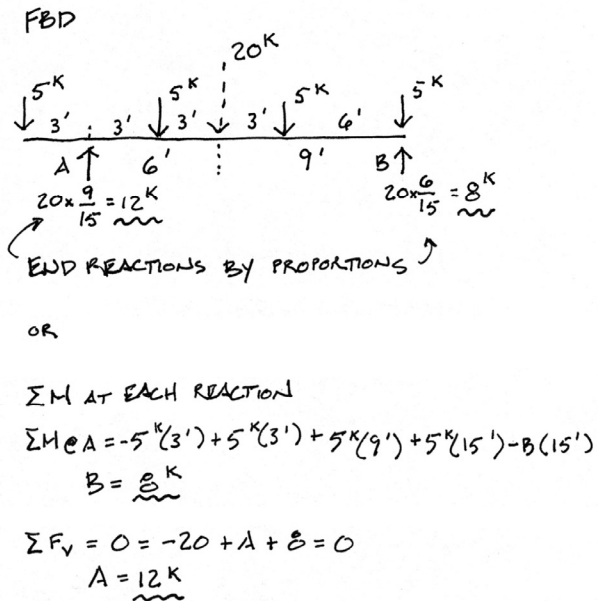 FBD
20K
5K 5K 5K 5K
3' 3' 3' 3' 6'
A 6' 9' B
20x 9/15 = 12K 20x 6/15 = 8K
END REACTIONS BY PROPORTIONS
OR
ΣM AT EACH REACTION
ΣM@A = -5K(3') + 5K(3') + 5K(9') + 5K(15') - B(15')
B = 8K
ΣFv = 0 = -20 + A + 8 = 0
A = 12K